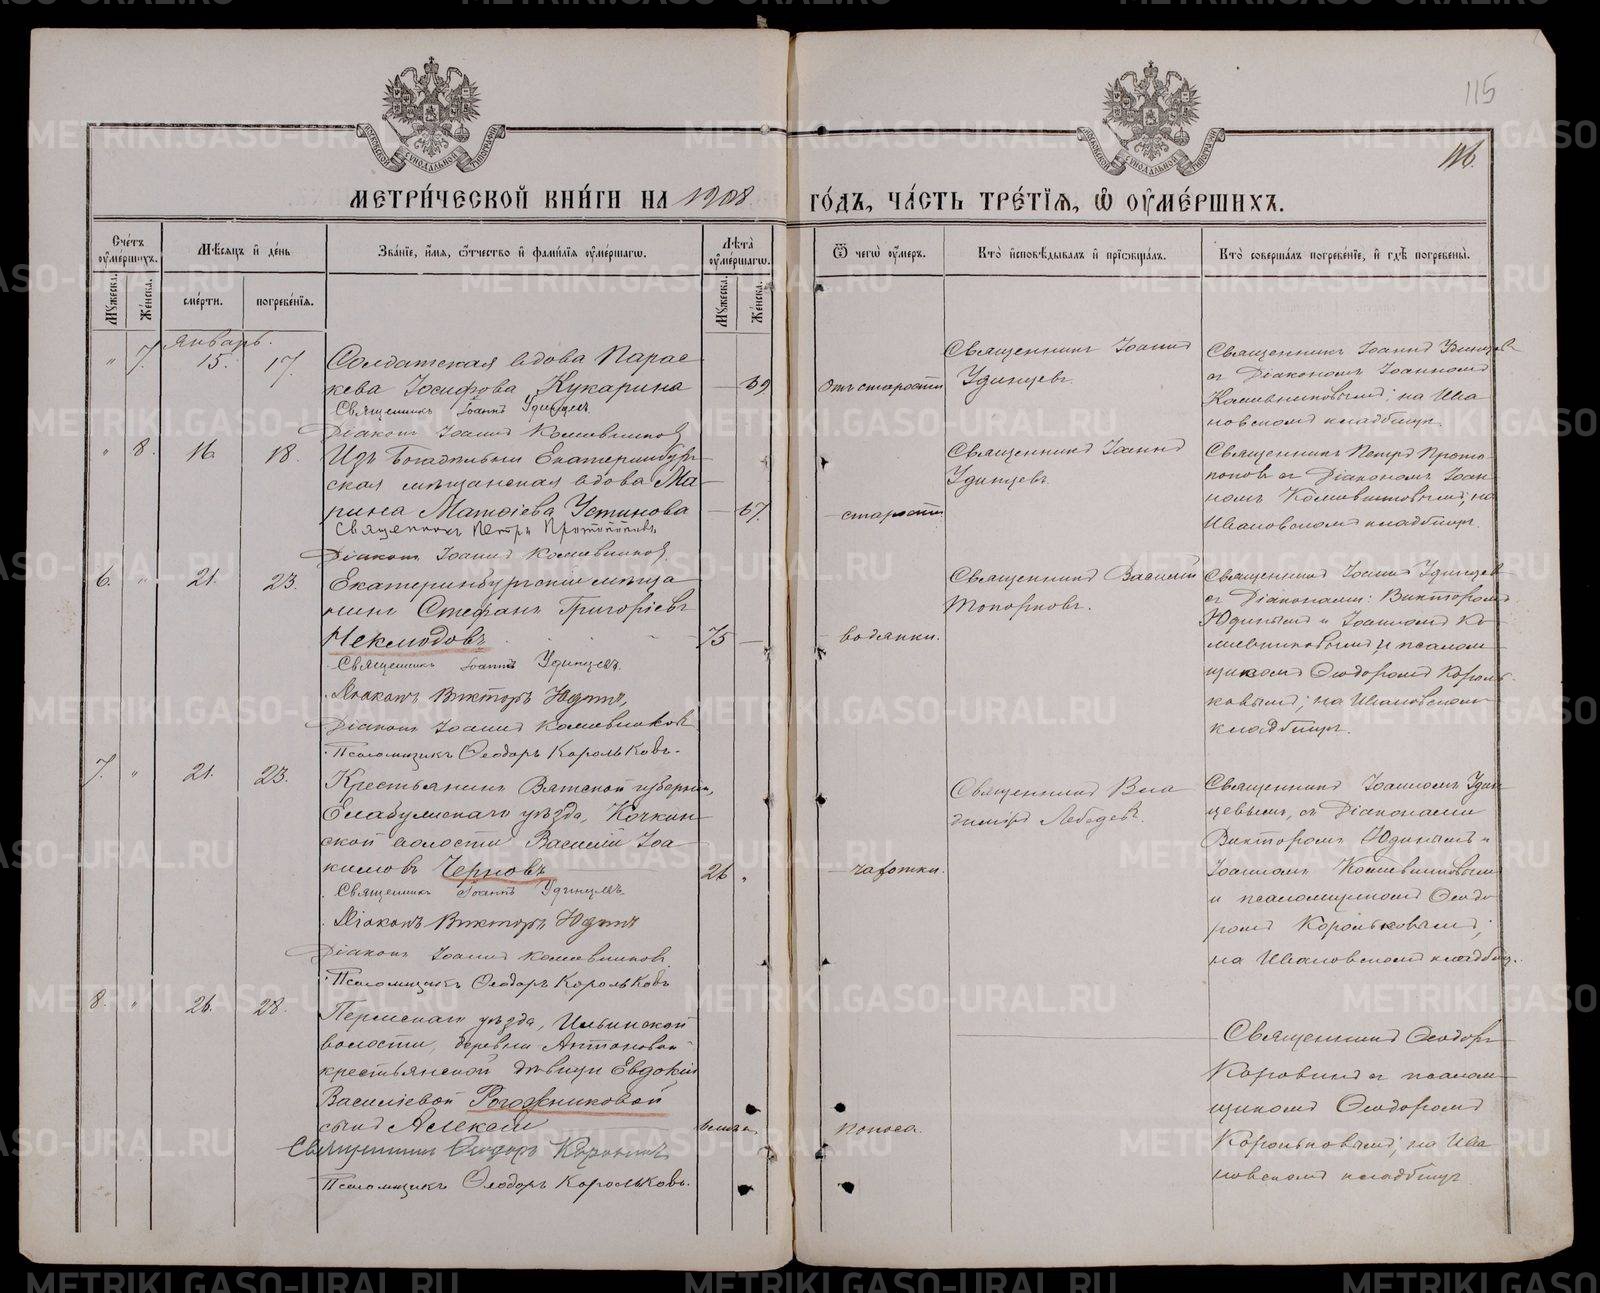 115
116.
МЕТРИ́ЧЕСКОЙ КНИ́ГИ НА 1908 ГО́ДЪ, ЧА́СТЬ ТРЕ́ТІЯ, Ѡ ОУМЕ́РШИХЪ.
Сче́тъ оуме́ршихъ.
Мꙋжеска.
Же́нска.
Мѣ́сяцъ и҆ де́нь
сме́рти.
погребе́нія.
Зва́ніе, и҆́мя, ѻ҆́тчество и҆ фами́лія оуме́ршагѡ.
Лѣ́та оуме́ршагѡ.
Мꙋжеска.
Же́нска.
Ѿ чегѡ̀ оу́меръ.
Кто̀ и҆сповѣ́дывалъ и҆ прїѡбща́лъ.
Кто̀ соверша́лъ погребе́ніе, и҆ гдѣ̀ погребены̀.
Январь.
" 7. 15. 17.
Солдатская вдова Парас-
кева Іосифова Кукарина — 69
Священникъ Іоаннъ Удинцевъ.
Діаконъ Іоаннъ Кожевниковъ
отъ старости
Священникъ Іоаннъ
Удинцевъ.
Священникъ Іоаннъ Удинцев
съ Діакономъ Іоанномъ
Кожевниковымъ; на Ива-
новскомъ кладбищѣ.
" 8. 16. 18.
Изъ богадѣльни Екатеринбург-
ская мѣщанская вдова Ма-
рина Матѳіева Устинова — 67.
Священникъ Петръ Протопоповъ
Діаконъ Іоаннъ Кожевниковъ.
— старости
Священникъ Іоаннъ
Удинцевъ.
Священникъ Петръ Прото-
поповъ съ Діакономъ Іоан-
номъ Кожевниковымъ; на
Ивановскомъ кладбищѣ.
6. " 21. 23.
Екатеринбургскій мѣща-
нинъ Стефанъ Григоріевъ
Неклюдовъ 75 —
Священникъ Іоаннъ Удинцевъ.
Діаконъ Викторъ Юдинъ,
Діаконъ Іоаннъ Кожевниковъ
Псаломщикъ Ѳеодоръ Корольковъ.
— водянки.
Священникъ Василій
Топорковъ.
Священникъ Іоаннъ Удинцев
съ Діаконами: Викторомъ
Юдинымъ и Іоанномъ Ко-
жевниковымъ и псалом-
щикомъ Ѳеодоромъ Король-
ковымъ; на Ивановскомъ
кладбищѣ.
7. " 21. 23.
Крестьянинъ Вятской губерніи,
Елабужскаго уѣзда, Кочкин-
ской волости Василій Іоа-
кимовъ Черновъ 26 "
Священникъ Іоаннъ Удинцевъ.
Діаконъ Викторъ Юдинъ
Діаконъ Іоаннъ Кожевниковъ.
Псаломщикъ Ѳеодоръ Корольковъ
— чахотки.
Священникъ Вла-
диміръ Лебедевъ.
Священникъ Іоанномъ Удин-
цевымъ, съ Діаконами
Викторомъ Юдинымъ и
Іоанномъ Кожевниковымъ
и псаломщикомъ Ѳеодо-
ромъ Корольковымъ;
на Ивановскомъ кладбищ.
8. " 26. 28.
Пермскаго уѣзда, Ильинской
волости, деревни Антоновой
крестьянской дѣвицы Евдокіи
Василіевой Рогожниковой
сынъ Алексій
Священникъ Ѳеодоръ Коровинъ
Псаломщикъ Ѳеодоръ Корольковъ.
поноса.
Священникъ Ѳеодоръ
Коровинъ съ псалом-
щикомъ Ѳеодоромъ
Корольковымъ; на Ива-
новскомъ кладбищѣ
METRIKI.GASO-URAL.RU